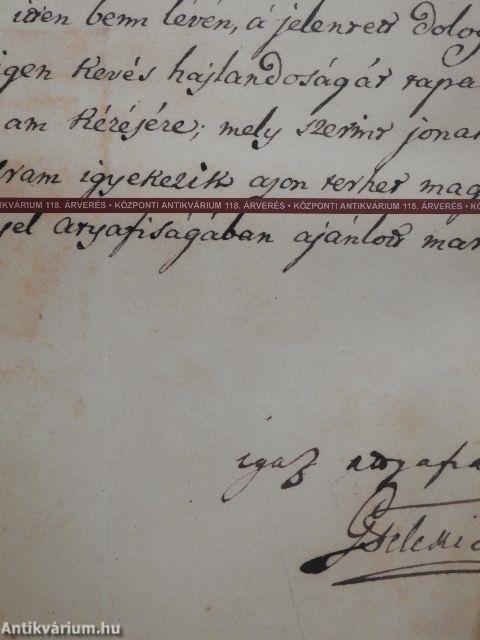 itten benn lévén, á jelentett dolog
igen kevés hajlandoságát tapa
am kérésére; mely szerint jonak
igyekezik azon terhet mag
NTIKVÁRIUM 118. ÁRVERÉS • KÖZPONTI ANTIKVÁRIUM 118. ÁRVERÉS • KÖZPONTI ANTIKVÁRIUM 118. ÁRVERÉS • K
yel atyafiságában ajánlott mar
igaz attyafia
Antikvárium.hu